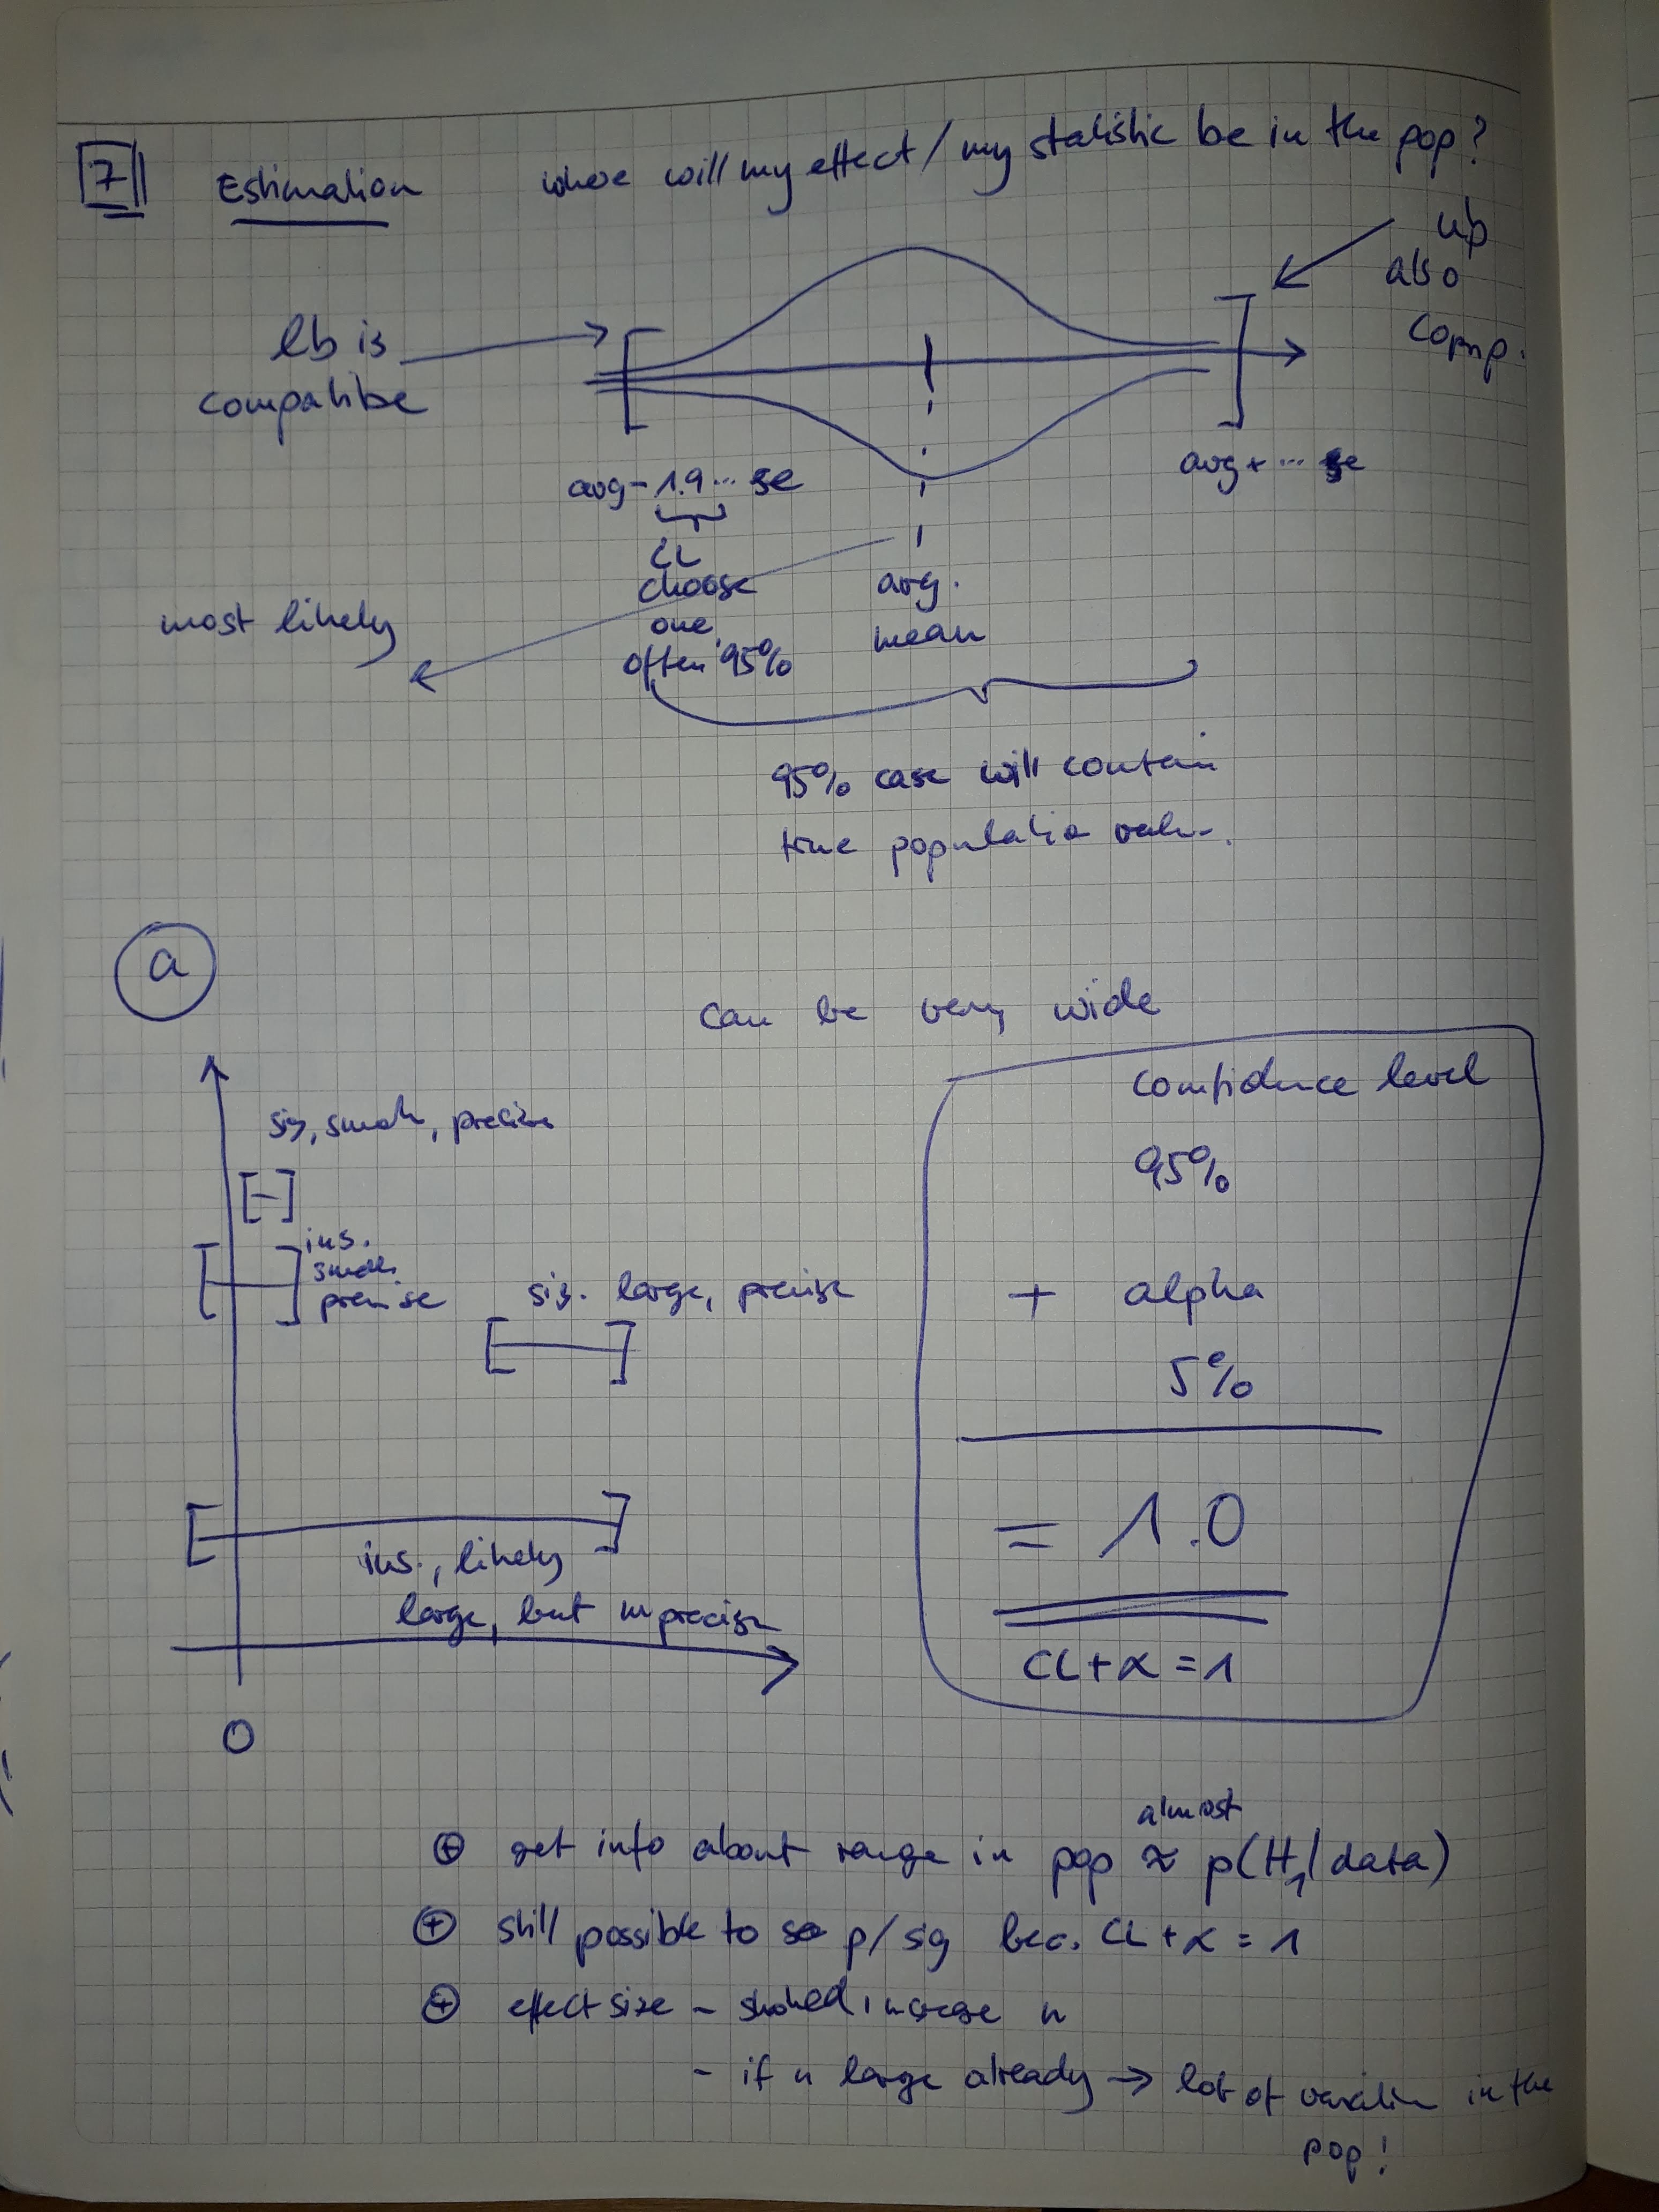 7 Estimation where will my effect / my statistic be in the pop?
ub
also
comp.
lb is
compatibe
avg - 1.9... se
avg + ... se
CL
choose
one,
often 95%
avg.
mean
most likely
95% case will contain
true population
a
can be very wide
sig, small, precise
ins.
small
precise
sig. large, precise
ins., likely
large, but imprecise
0
confidence level
95%
+ alpha
5%
= 1.0
CL + α = 1
almost
⊕ get info about range in pop ≈ p(H1 | data)
⊕ still possible to p/sig bec. CL + α = 1
⊕ effect size - should increase n
- if n large already → lot of variation in the
pop!